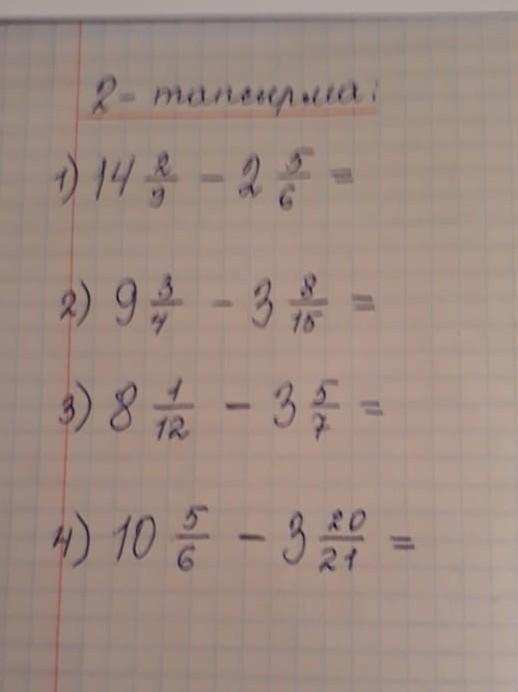 2-тапсырма:
1) 14 2/9 - 2 5/6 =
2) 9 3/4 - 3 8/15 =
3) 8 1/12 - 3 5/7 =
4) 10 5/6 - 3 20/21 =